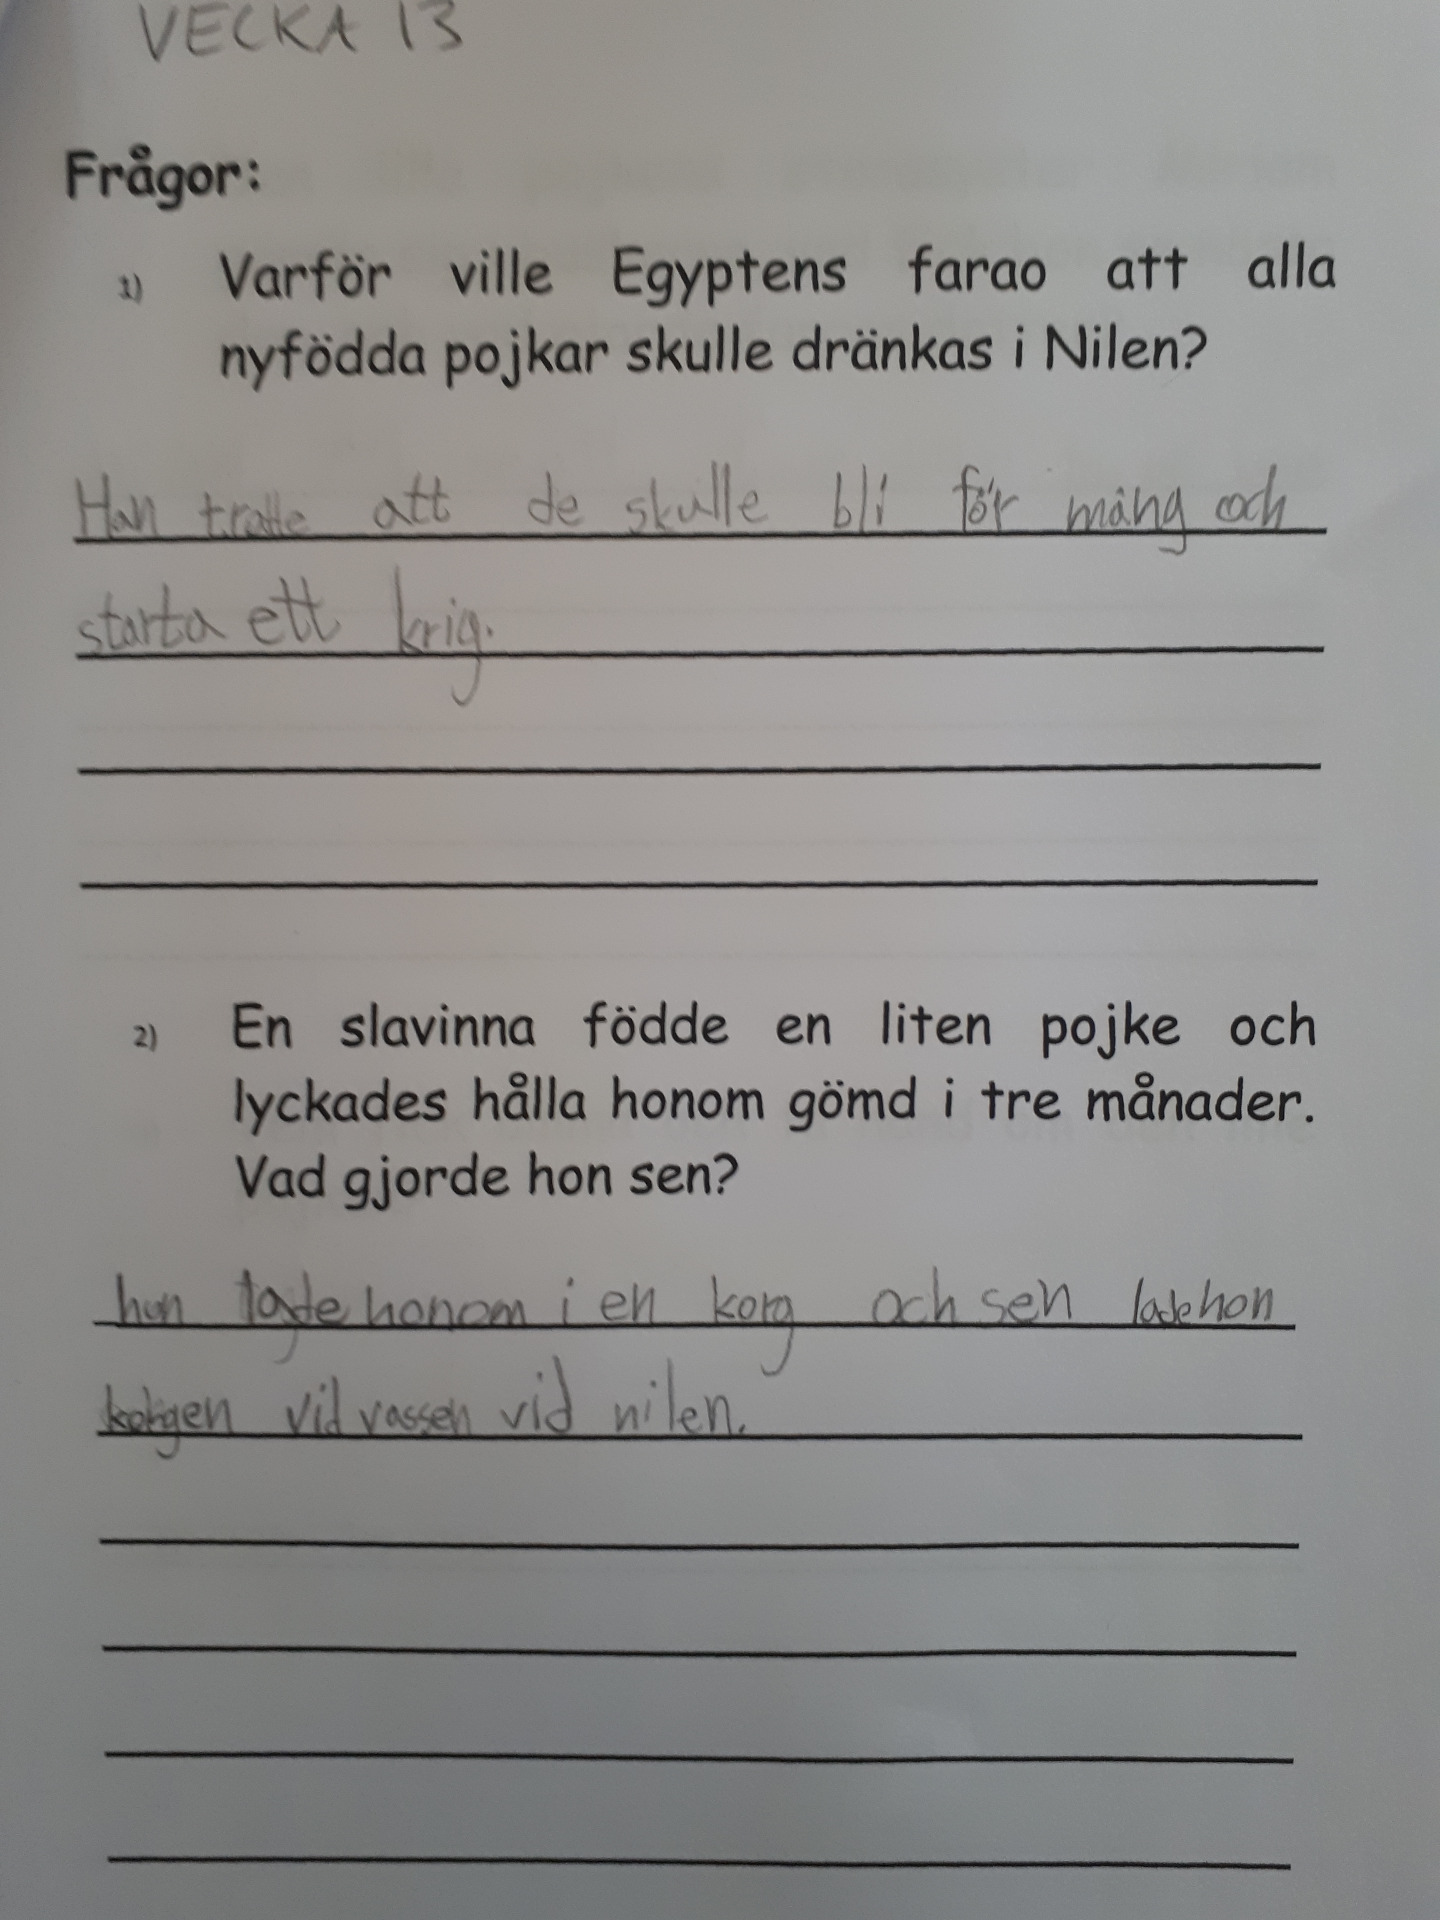 VECKA 13
Frågor:
1) Varför ville Egyptens farao att alla
nyfödda pojkar skulle dränkas i Nilen?
Han trodde att de skulle bli för mång och
starta ett krig.
2) En slavinna födde en liten pojke och
lyckades hålla honom gömd i tre månader.
Vad gjorde hon sen?
hon lagde honom i en korg och sen lade hon
korgen vid vassen vid nilen.